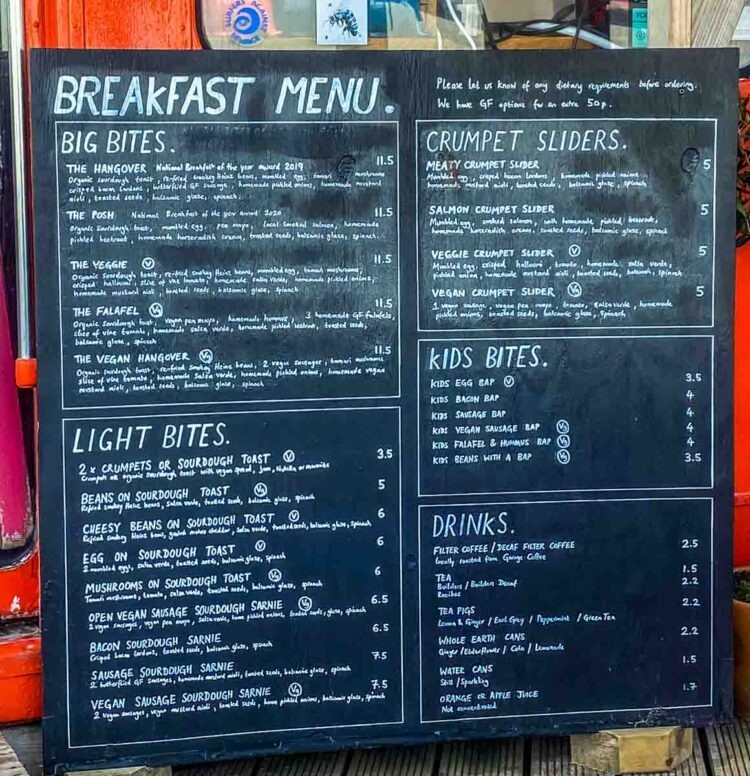 SURFERS AGAINST
BREAKFAST MENU.
Please let us know of any dietary requirements before ordering.
We have GF options for an extra 50p.
BIG BITES.
THE HANGOVER National Breakfast of the year award 2019 11.5
Organic sourdough toast, re-fried smokey Heinz beans, mumbled egg, tamari mushrooms
crisped bacon lardons, butterflied GF sausage, homemade pickled onions, homemade mustard
aioli, toasted seeds, balsamic glaze, spinach.
THE POSH National Breakfast of the year award 2020 11.5
Organic sourdough toast, mumbled egg, pea mayo, local smoked salmon, homemade
pickled beetroot, homemade horseradish cream, toasted seeds, balsamic glaze, spinach.
THE VEGGIE V 11.5
Organic sourdough toast, re-fried smokey Heinz beans, mumbled egg, tamari mushrooms,
crisped halloumi, slice of vine tomato, homemade salsa verde, homemade pickled onions,
homemade mustard aioli, toasted seeds, balsamic glaze, spinach
THE FALAFEL Vg 11.5
Organic Sourdough toast, vegan pea mayo, homemade hummus, 3 homemade GF falafels,
slice of vine tomato, homemade salsa verde, homemade pickled beetroot, toasted seeds,
balsamic glaze, spinach
THE VEGAN HANGOVER Vg 11.5
Organic sourdough toast, re-fried smokey Heinz beans, 2 vegan sausages, tamari mushrooms
slice of vine tomato, homemade salsa verde, homemade pickled onions, homemade vegan
mustard aioli, toasted seeds, balsamic glaze, spinach
LIGHT BITES.
2 x CRUMPETS OR SOURDOUGH TOAST V 3.5
Crumpets or organic sourdough toast with vegan spread, jam, Nutella or marmite
BEANS ON SOURDOUGH TOAST Vg 5
Refried smokey Heinz beans, salsa verde, toasted seeds, balsamic glaze, spinach
CHEESY BEANS ON SOURDOUGH TOAST V 6
Refried smokey Heinz beans, grated mature cheddar, salsa verde, toasted seeds, balsamic glaze, spinach
EGG ON SOURDOUGH TOAST V 6
2 mumbled eggs, salsa verde, toasted seeds, balsamic glaze, spinach
MUSHROOMS ON SOURDOUGH TOAST Vg 6
Tamari mushrooms, tomato, salsa verde, toasted seeds, balsamic glaze, spinach
OPEN VEGAN SAUSAGE SOURDOUGH SARNIE Vg 6.5
2 vegan sausages, vegan pea mayo, salsa verde, home pickled onions, toasted seeds, glaze, spinach
BACON SOURDOUGH SARNIE 6.5
Crisped bacon lardons, toasted seeds, balsamic glaze, spinach
SAUSAGE SOURDOUGH SARNIE 7.5
2 butterflied GF sausages, homemade mustard aioli, toasted seeds, balsamic glaze, spinach
VEGAN SAUSAGE SOURDOUGH SARNIE Vg 7.5
2 vegan sausages, vegan mustard aioli, toasted seeds, home pickled onions, balsamic glaze, spinach
CRUMPET SLIDERS.
MEATY CRUMPET SLIDER 5
Mumbled egg, crisped bacon lardons, homemade pickled onions,
homemade mustard aioli, toasted seeds, balsamic glaze, spinach
SALMON CRUMPET SLIDER 5
Mumbled egg, smoked salmon, with homemade pickled beetroot,
homemade horseradish cream, toasted seeds, balsamic glaze, spinach
VEGGIE CRUMPET SLIDER V 5
Mumbled egg, crisped halloumi, tomato, homemade salsa verde,
pickled onion, homemade mustard aioli, toasted seeds, balsamic, spinach.
VEGAN CRUMPET SLIDER Vg 5
1 vegan sausage, vegan pea mayo, tomato, salsa verde, homemade
pickled onions, toasted seeds, balsamic glaze, spinach
KIDS BITES.
KIDS EGG BAP V 3.5
KIDS BACON BAP 4
KIDS SAUSAGE BAP 4
KIDS VEGAN SAUSAGE BAP Vg 4
KIDS FALAFEL & HUMMUS BAP Vg 4
KIDS BEANS WITH A BAP Vg 3.5
DRINKS.
FILTER COFFEE / DECAF FILTER COFFEE 2.5
locally roasted from Garage Coffee
TEA 1.5
Builders / Builders Decaf 2.2
Rooibos
TEA PIGS 2.2
Lemon & Ginger / Earl Grey / Peppermint / Green Tea
WHOLE EARTH CANS 2.2
Ginger / Elderflower / Cola / Lemonade
WATER CANS 1.5
Still / Sparkling
ORANGE OR APPLE JUICE 1.7
Not concentrated